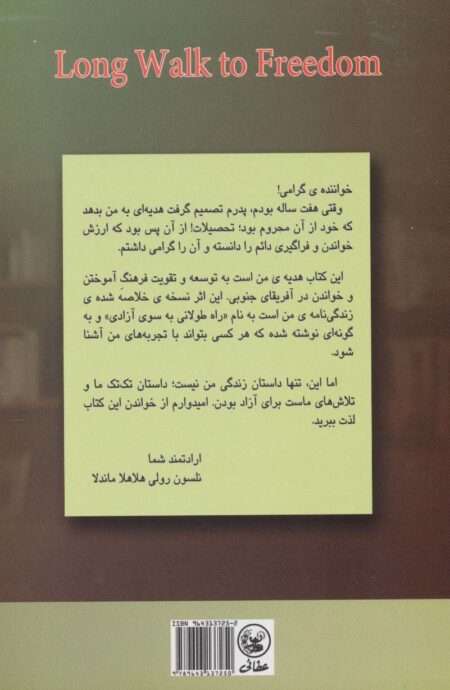 Long Walk to Freedom
خواننده ی گرامی!
وقتی هفت ساله بودم، پدرم تصمیم گرفت هدیه‌ای به من بدهد
که خود از آن محروم بود؛ تحصیلات! از آن پس بود که ارزش
خواندن و فراگیری دائم را دانسته و آن را گرامی داشتم.
این کتاب هدیه ی من است به توسعه و تقویت فرهنگ آموختن
و خواندن در آفریقای جنوبی. این اثر نسخه ی خلاصه شده ی
زندگی‌نامه ی من است به نام «راه طولانی به سوی آزادی» و به
گونه‌ای نوشته شده که هر کسی بتواند با تجربه‌های من آشنا
شود.
اما این، تنها داستان زندگی من نیست؛ داستان تک‌تک ما و
تلاش‌های ماست برای آزاد بودن. امیدوارم از خواندن این کتاب
لذت ببرید.
ارادتمند شما
نلسون رولی هلاهلا ماندلا
ISBN 964313725-2
9 789643 137250
عطائی